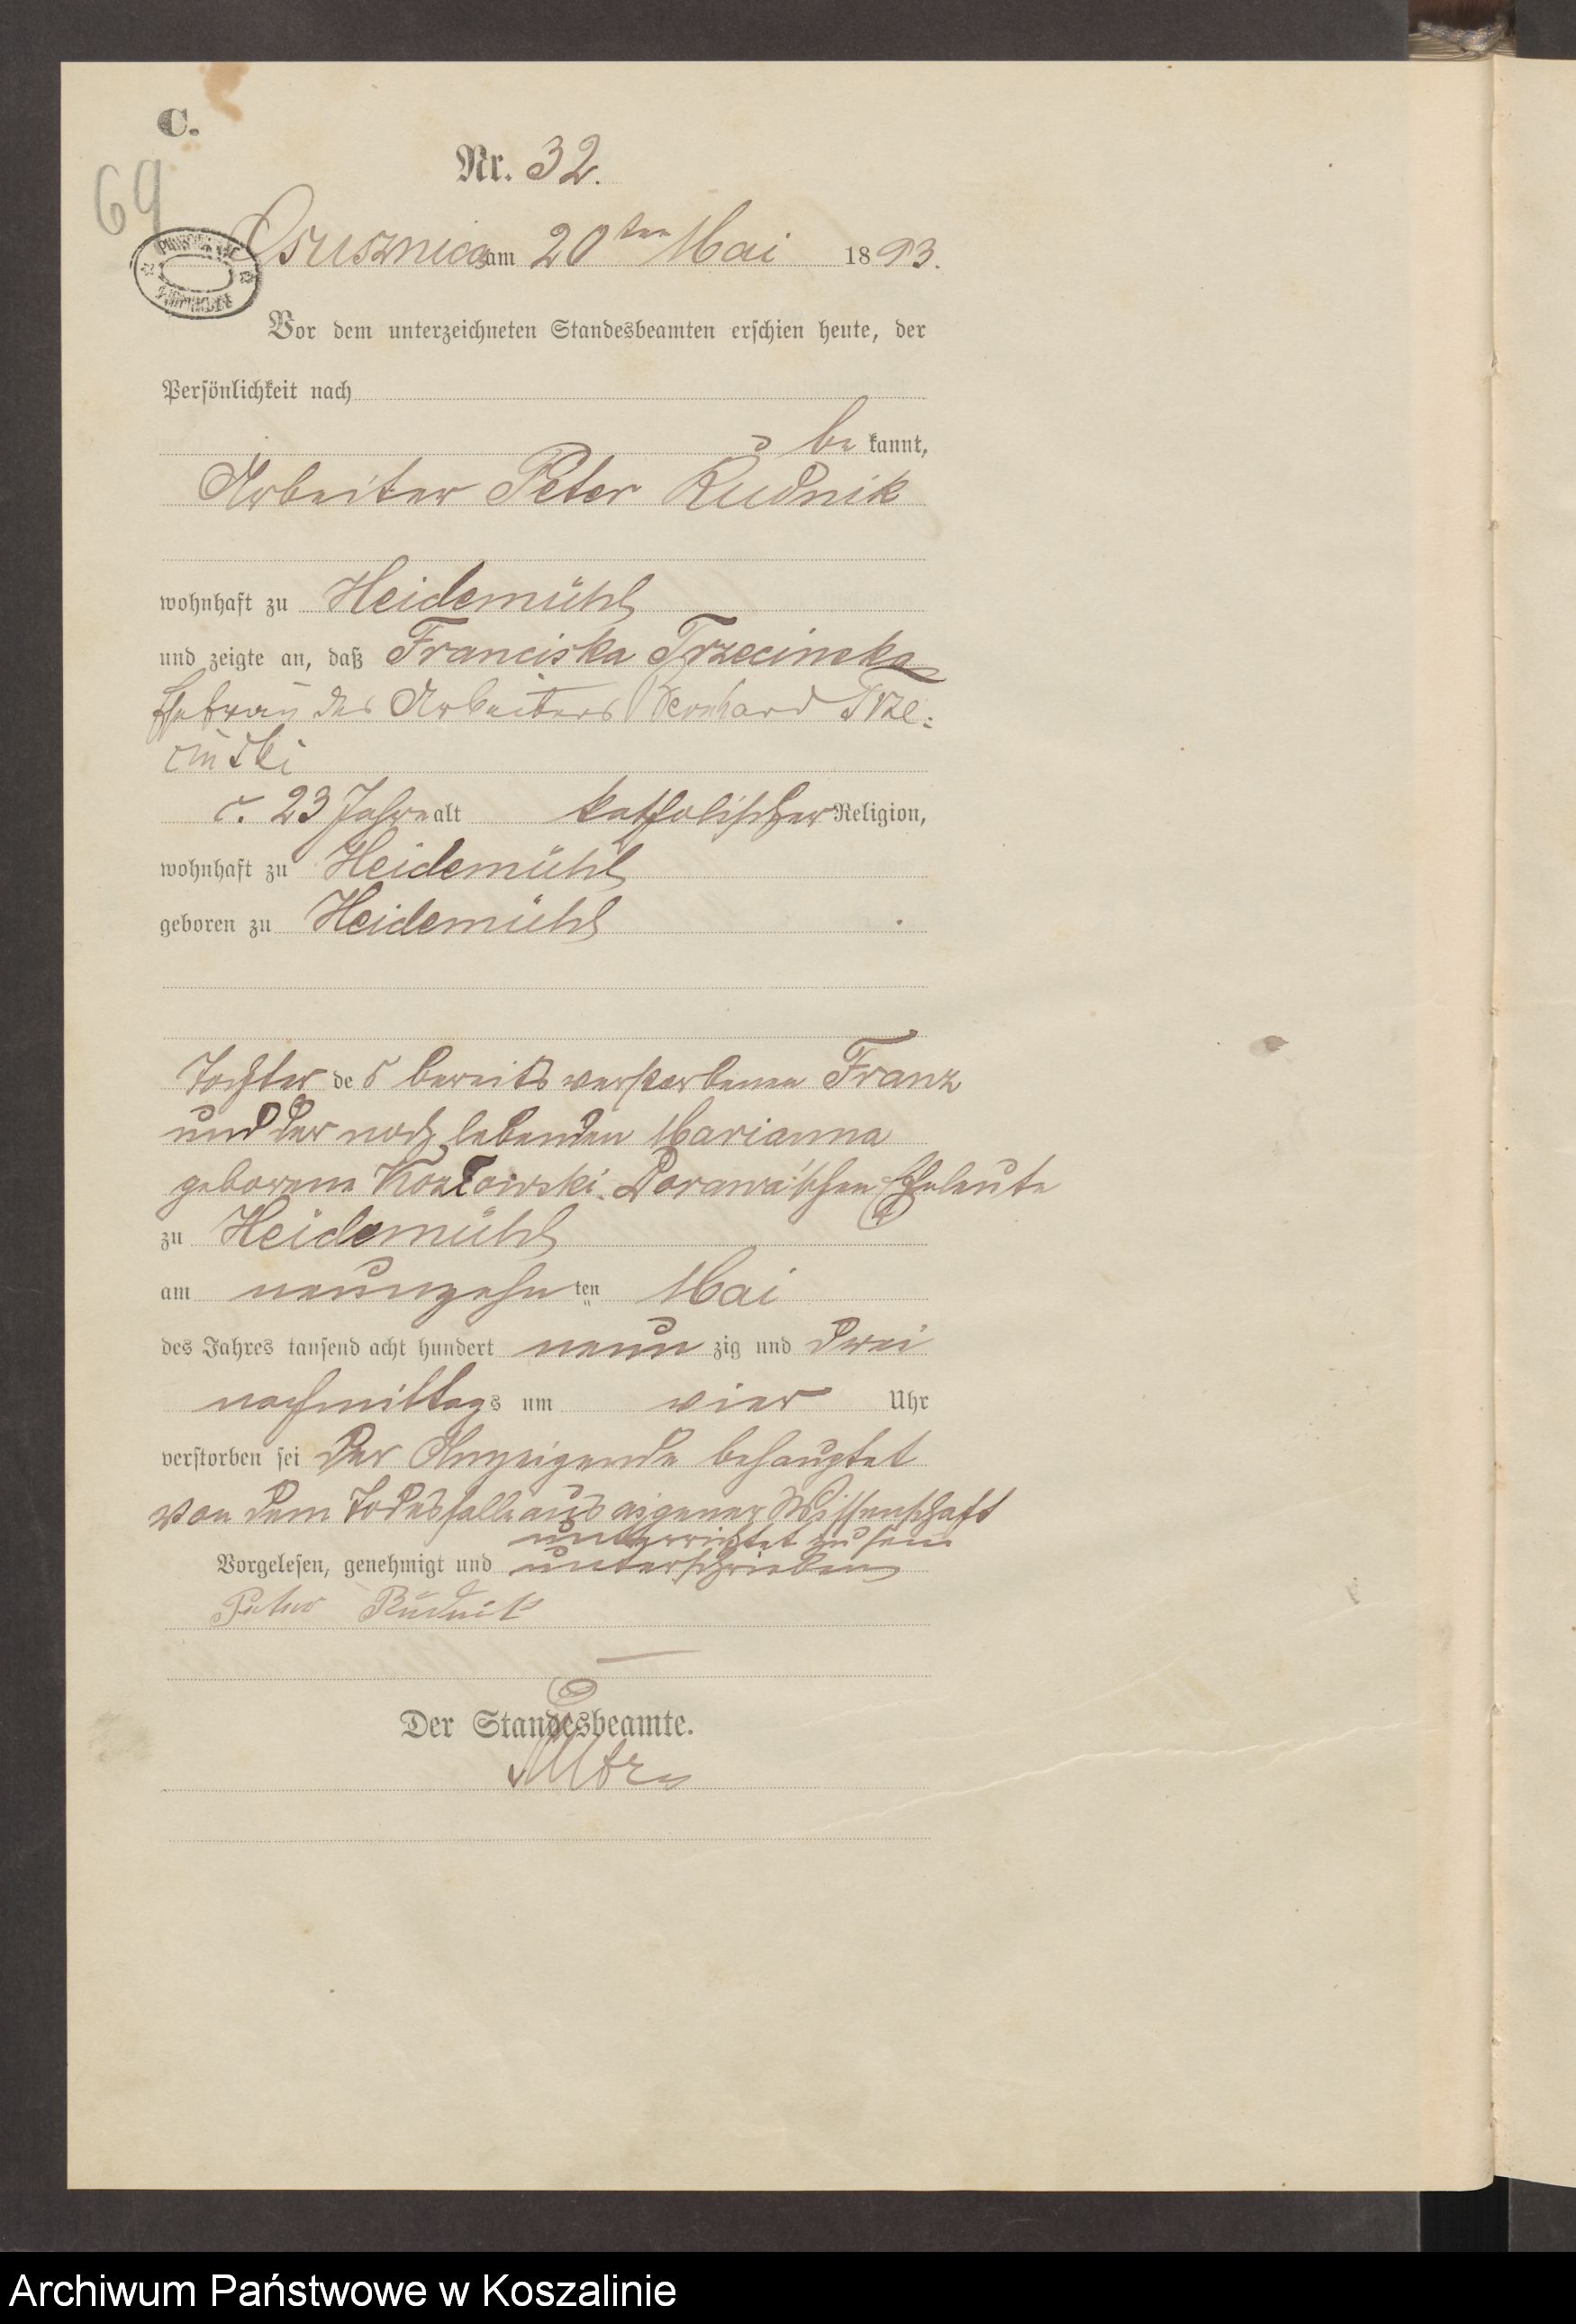 C.
69
Nr. 32.
Osusznica am 20ten Mai 1893.
Vor dem unterzeichneten Standesbeamten erschien heute, der
Persönlichkeit nach
be kannt,
Arbeiter Peter Rudnik
wohnhaft zu Heidemühl
und zeigte an, daß Franciska Trzecinska
Ehefrau des Arbeiters Bernhard Trze-
cinski
c. 23 Jahre alt katholischer Religion,
wohnhaft zu Heidemühl
geboren zu Heidemühl
Tochter des bereits verstorbenen Franz
und der noch lebenden Marianna
geborene Kozłowski Dorawa'schen Eheleute
zu Heidemühl
am neunzehn ten Mai
des Jahres tausend acht hundert neun zig und drei
nachmittags um vier Uhr
verstorben sei Der Anzeigende behauptet
von dem Todesfalle aus eigener Wissenschaft
unterrichtet zu sein
Vorgelesen, genehmigt und unterschrieben
Peter Rudnik
Der Standesbeamte.
Archiwum Państwowe w Koszalinie